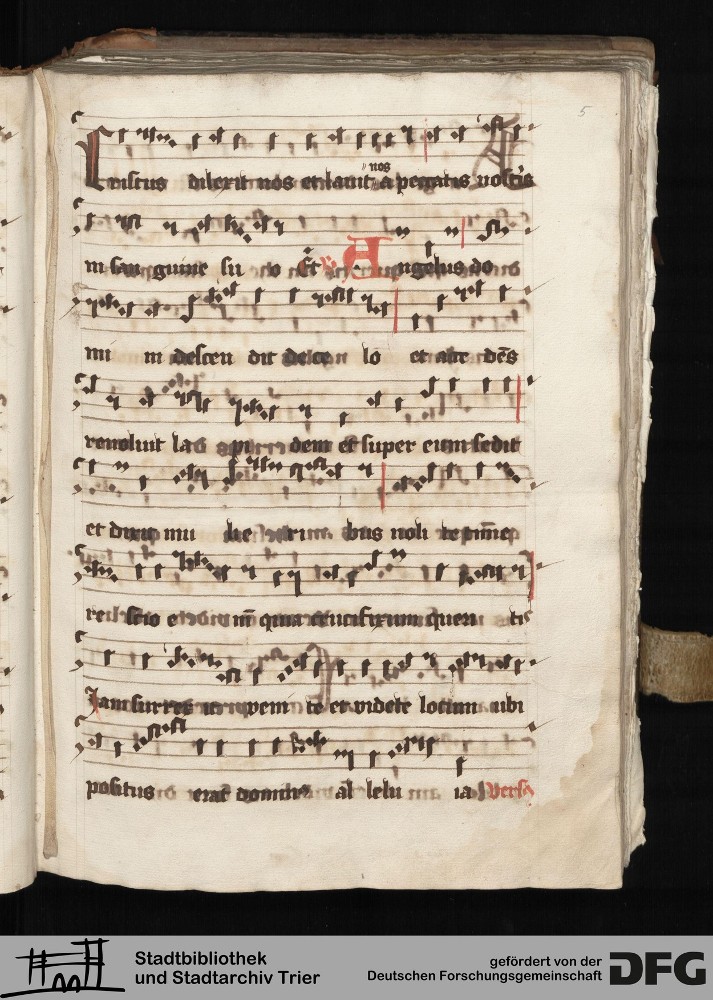 5
Cristus dilexit nos et lauit nos a peccatis nostris
in san guine su o Et Angelus do
mi ni descen dit de ce lo et acce dēs
reuoluit la pi dem et super eum sedit
et dixit mu lie ri bus noli te time
re scio e ni qui a crucifixum queri tis
Iam surrex it ueni te et videte locum ubi
positus erat dominus al lelu ia Vers
Stadtbibliothek
und Stadtarchiv Trier
gefördert von der
Deutschen Forschungsgemeinschaft
DFG